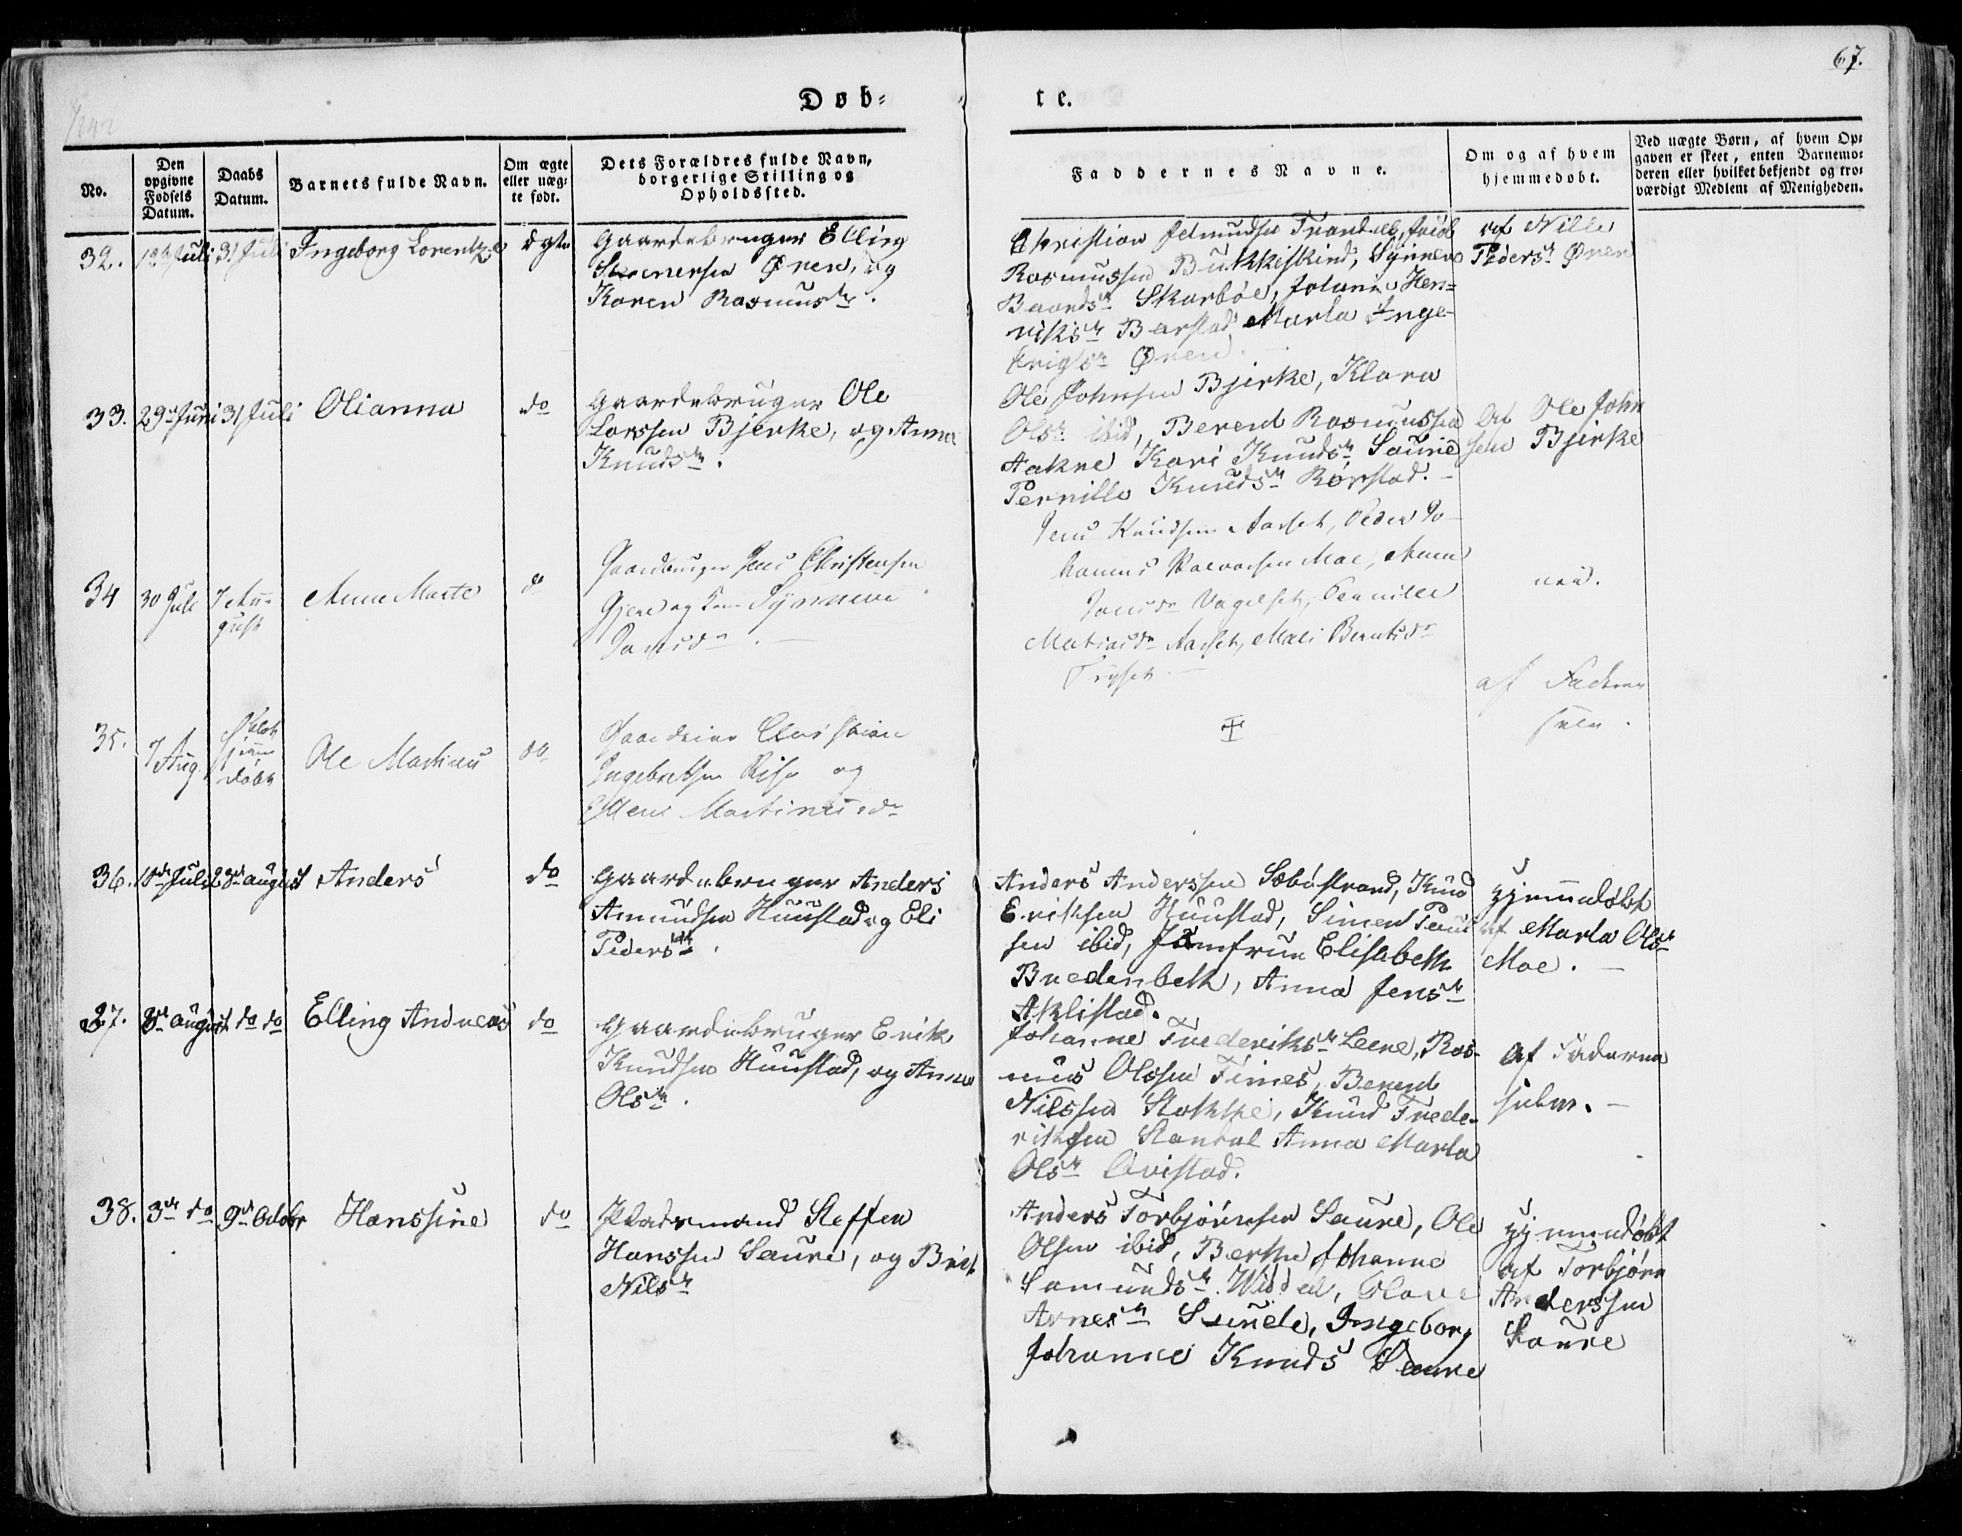 67.
1842
Døb-
te.
No.
Den opgivne Fødsels Datum.
Daabs Datum.
Barnets fulde Navn.
Om ægte eller uæg- te født.
Dets Forældres fulde Navn, borgerlige Stilling og Opholdssted.
Faddernes Navne.
Om og af hvem hjemmedøbt.
Ved uægte Børn, af hvem Op- gaven er skeet, enten Barnemo- deren eller hvilket bekjendt og tro- værdigt Medlem af Menigheden.
32. Juli 31 Juli Ingeborg Lorentze ægte
Gaardebruger Elling
Steenersen Øren, og
Karen Rasmusdr.
Christian
Rasmussen Synneve
Baardsdr Skarbøe, Johanne Hen-
riksdr Barstad Marta Inge-
brigtsdr Øren.
af Nille
Pedersdr Øren
33. 29de Juni 31 Juli Olianna do
Gaardebruger Ole
Larssen Bjerke, og Anna
Knudsdr.
Ole Johnsen Bjerke, Klara
Olsdr ibid, Berend Rasmussen
Aakre Kari Knudsdr Saure
Pernille Knudsdr Rørstad.
Af Ole John
sen Bjerke
34 30 Juli 7 Au-
gust
Anne Marte do
Gaardbruger Jens Christensen
og Synneve
Jens Knudsen Aarset, Peder Jo-
hannes Moe, Anne
Pernille
Aarset, Mali Berntsdr
nei.
35. 7 Aug
hjemme
døbt
Ole Martinus do
Christian
Ingebretsen Rise og
Ellen Martinusdr
af Faderen
selv.
36. 18de Juli 28de august Anders do
Gaardebruger Anders
Amundsen Huustad og Eli
Pedersdr.
Anders Anderssen Sæbøstrand, Knud
Eriksen Huustad, Simen
sen ibid, Jomfrue Elisabeth
Bredenbeck, Anna Jensdr
Aklistad.
Hjemmedøbt
af Marta Olsdr
Moe.
37. 3de august do do Elling Andreas do
Gaardebruger Erik
Knudsen Huustad, og Anne
Olsdr.
Johanne Frederiksdr Leene, Ras-
mus Olssen Times, Berend
Nilssen Stokke, Knud Frede-
riksen Standal Anna Marta
Olsdr Qvistad.
af Faderen
selv.
38. 3de do 9de Octobr Hanssine do
Pladsmand Steffen
Hanssen Saure, og Brit
Nilsdr
Anders Torbjørnsen Saure, Ole
Olsen ibid, Berthe Johanne
Samundsdr Widdal, Olave
Arnesdr Sunde, Ingeborg
Johanne Knuds Saure
Hjemmedøbt
af Torbjørn
Anderssen
Saure